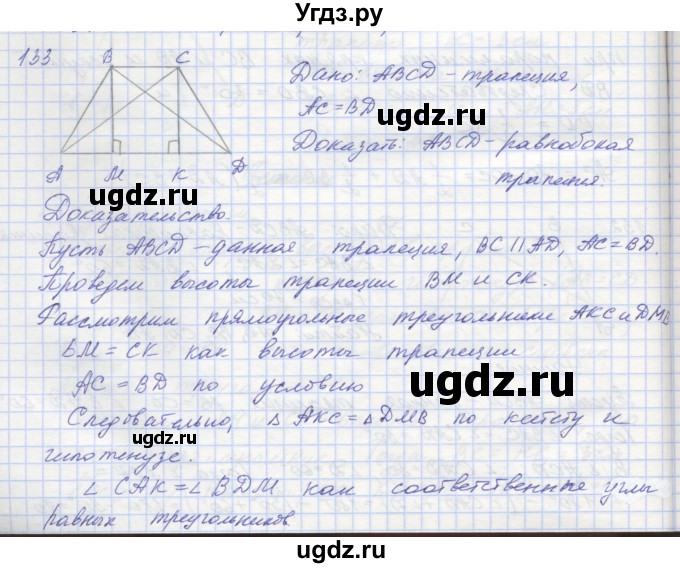 Угdз.ру
133
B C
A M K D
Дано: ABCD - трапеция,
AC = BD
Доказать: ABCD - равнобокая
трапеция.
ugdz.ru
ugdz.ru
Доказательство.
Пусть ABCD - данная трапеция, BC || AD, AC = BD.
Проведем высоты трапеции BM и CK.
Рассмотрим прямоугольные треугольники AKC и DMB
BM = CK как высоты трапеции
AC = BD по условию
ugdz.ru
Следовательно, △ AKC = △ DMB по катету и
ugdz.ru
гипотенузе.
∠ CAK = ∠ BDM как соответственные углы
равных треугольников
ugdz.ru
ugdz.ru